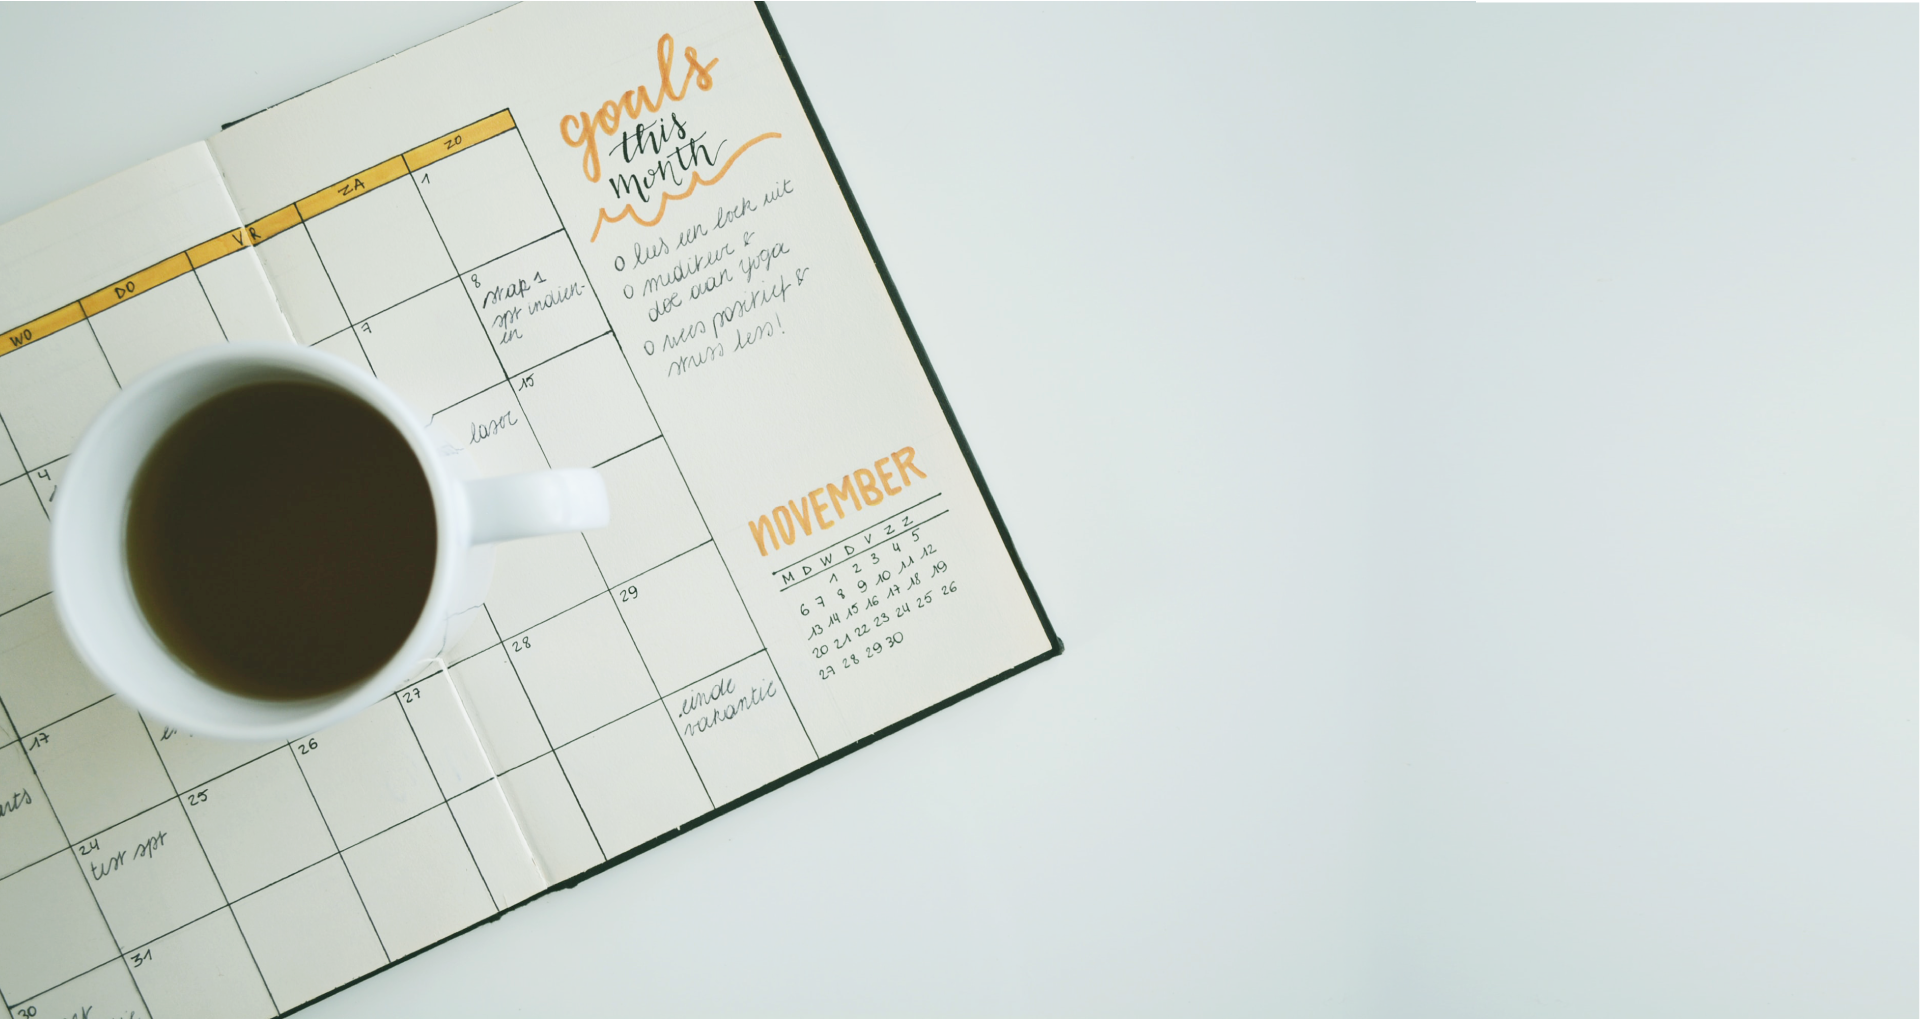 WO DO VR ZA ZO
1
7
8
stap 1
spt indien-
en
15
laser
4
17
24
test spt
25
26
27
28
29
einde
vakantie
30
31
goals
this
month
o lees een boek uit
o mediteer &
doe aan yoga
o wees positief &
stress less!
NOVEMBER
M D W D V Z Z
1 2 3 4 5
6 7 8 9 10 11 12
13 14 15 16 17 18 19
20 21 22 23 24 25 26
27 28 29 30